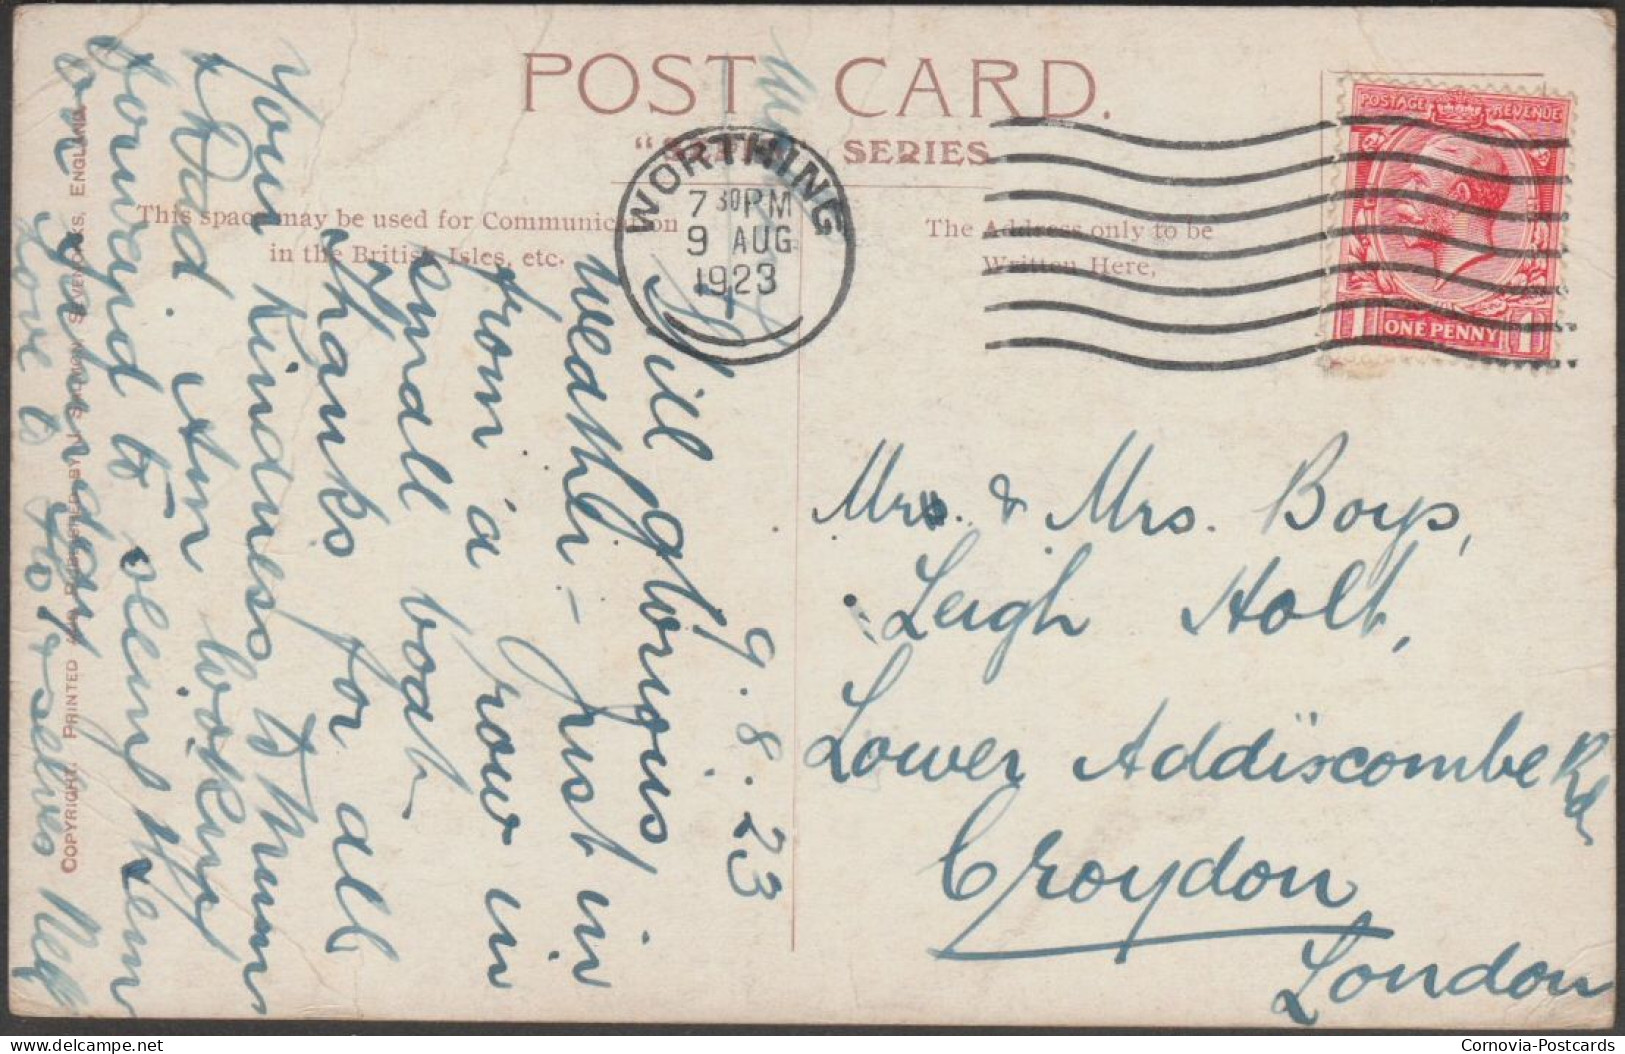 POST CARD.
SERIES
This space may be used for Communication
in the British Isles, etc.
The Address only to be
Written Here.
WORTHING
7 30 PM
9 AUG
1923
POSTAGE REVENUE
ONE PENNY
9.8.23
Still glorious
weather - just in
from a row in
small boat
Thanks for all
Your kindness to Mum
& Dad. Am looking
forward to seeing them
on Saturday
Love to Yourselves
Mrs. & Mrs. Boys,
Leigh Holt,
Lower Addiscombe Rd
Croydon
London
COPYRIGHT. PRINTED AND PUBLISHED BY J. SALMON, SEVENOAKS, ENGLAND.
Cornovia-Postcards